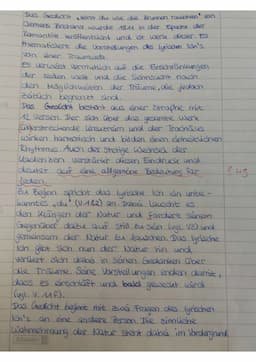 Das Gedicht „Hörst du wie die Brunnen rauschen" von
Clemens Brentano wurde 1811 in der Epoche der
Romantik veröffentlicht und ist Werk dieser. Es
thematisiert die Vorstellungen des lyrischen Ich's
von einer Traumwelt.
Es verweist vermutlich auf die Einschränkungen
der realen Welt und die Sehnsucht nach
den Möglichkeiten der Träume, die jedoch
zeitlich begrenzt sind.
Das Gedicht besteht aus einer Strophe mit
12 Versen. Der sich über das gesamte Werk
Kreuzreim und der Trochäus
wirken harmonisch und bilden einen einheitlichen
Rhythmus. Auch der stetige Wechsel der
Kadenzen verstärkt diesen Eindruck und
deutet auf eine allgemeine Bedeutung für
jeden.
Zu Beginn spricht das lyrische Ich ein unbe-
kanntes „du" (V.1&2) an. Dabei lauscht es
den Klängen der Natur und fordert seinen
Gegenüber dazu auf still zu sein (vgl. V2) und
gemeinsam der Natur zu lauschen. Das lyrische
Ich gibt sich nun der Natur hin und
verliert sich dabei in seinen Gedanken über
die Träume. Seine Vorstellungen enden damit,
dass es einschläft und bald geweckt wird
(vgl. V. 11f).
Das Gedicht beginnt mit zwei Fragen des lyrischen
Ich's an eine andere Person. Die sinnliche
Wahrnehmung der Natur steht dabei im Vordergrund